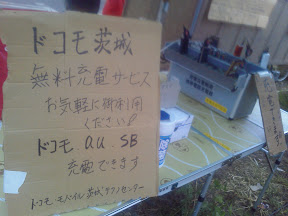 ドコモ茨城
無料充電サービス
お気軽に御利用
ください!
ドコモ a.u. SB
充電できます
ドコモ・モバイル茨城テクノセンター